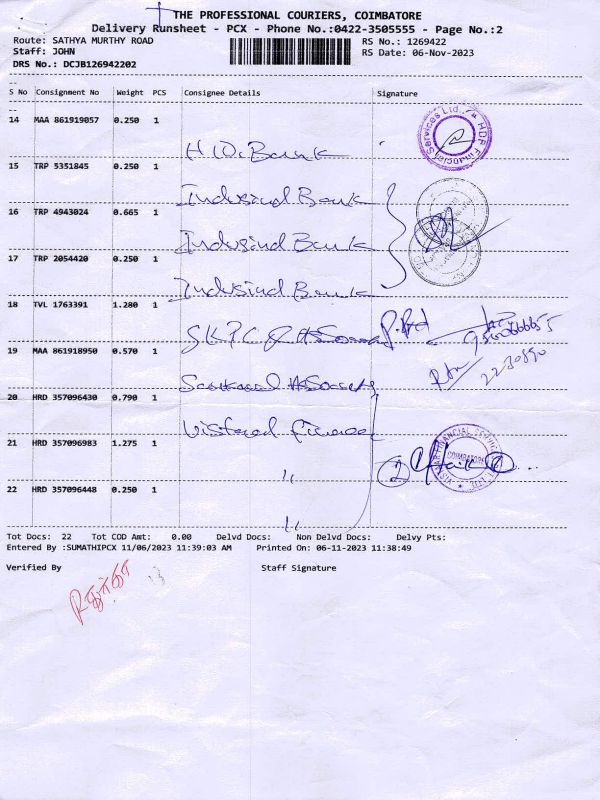 THE PROFESSIONAL COURIERS, COIMBATORE
Delivery Runsheet - PCX - Phone No.:0422-3505555 - Page No.:2
Route: SATHYA MURTHY ROAD RS No.: 1269422
Staff: JOHN RS Date: 06-Nov-2023
DRS No.: DCJB126942202
S No Consignment No Weight PCS Consignee Details Signature
14 MAA 861919057 0.250 1
Bank
15 TRP 5351845 0.250 1
Indusind Bank
16 TRP 4943024 0.665 1
Indusind Bank
17 TRP 2054420 0.250 1
Indusind Bank
18 TVL 1763391 1.280 1
19 MAA 861918950 0.570 1
20 HRD 357096430 0.790 1
21 HRD 357096983 1.275 1
"
22 HRD 357096448 0.250 1
"
Tot Docs: 22 Tot COD Amt: 0.00 Delvd Docs: Non Delvd Docs: Delvy Pts:
Entered By :SUMATHIPCX 11/06/2023 11:39:03 AM Printed On: 06-11-2023 11:38:49
Verified By Staff Signature